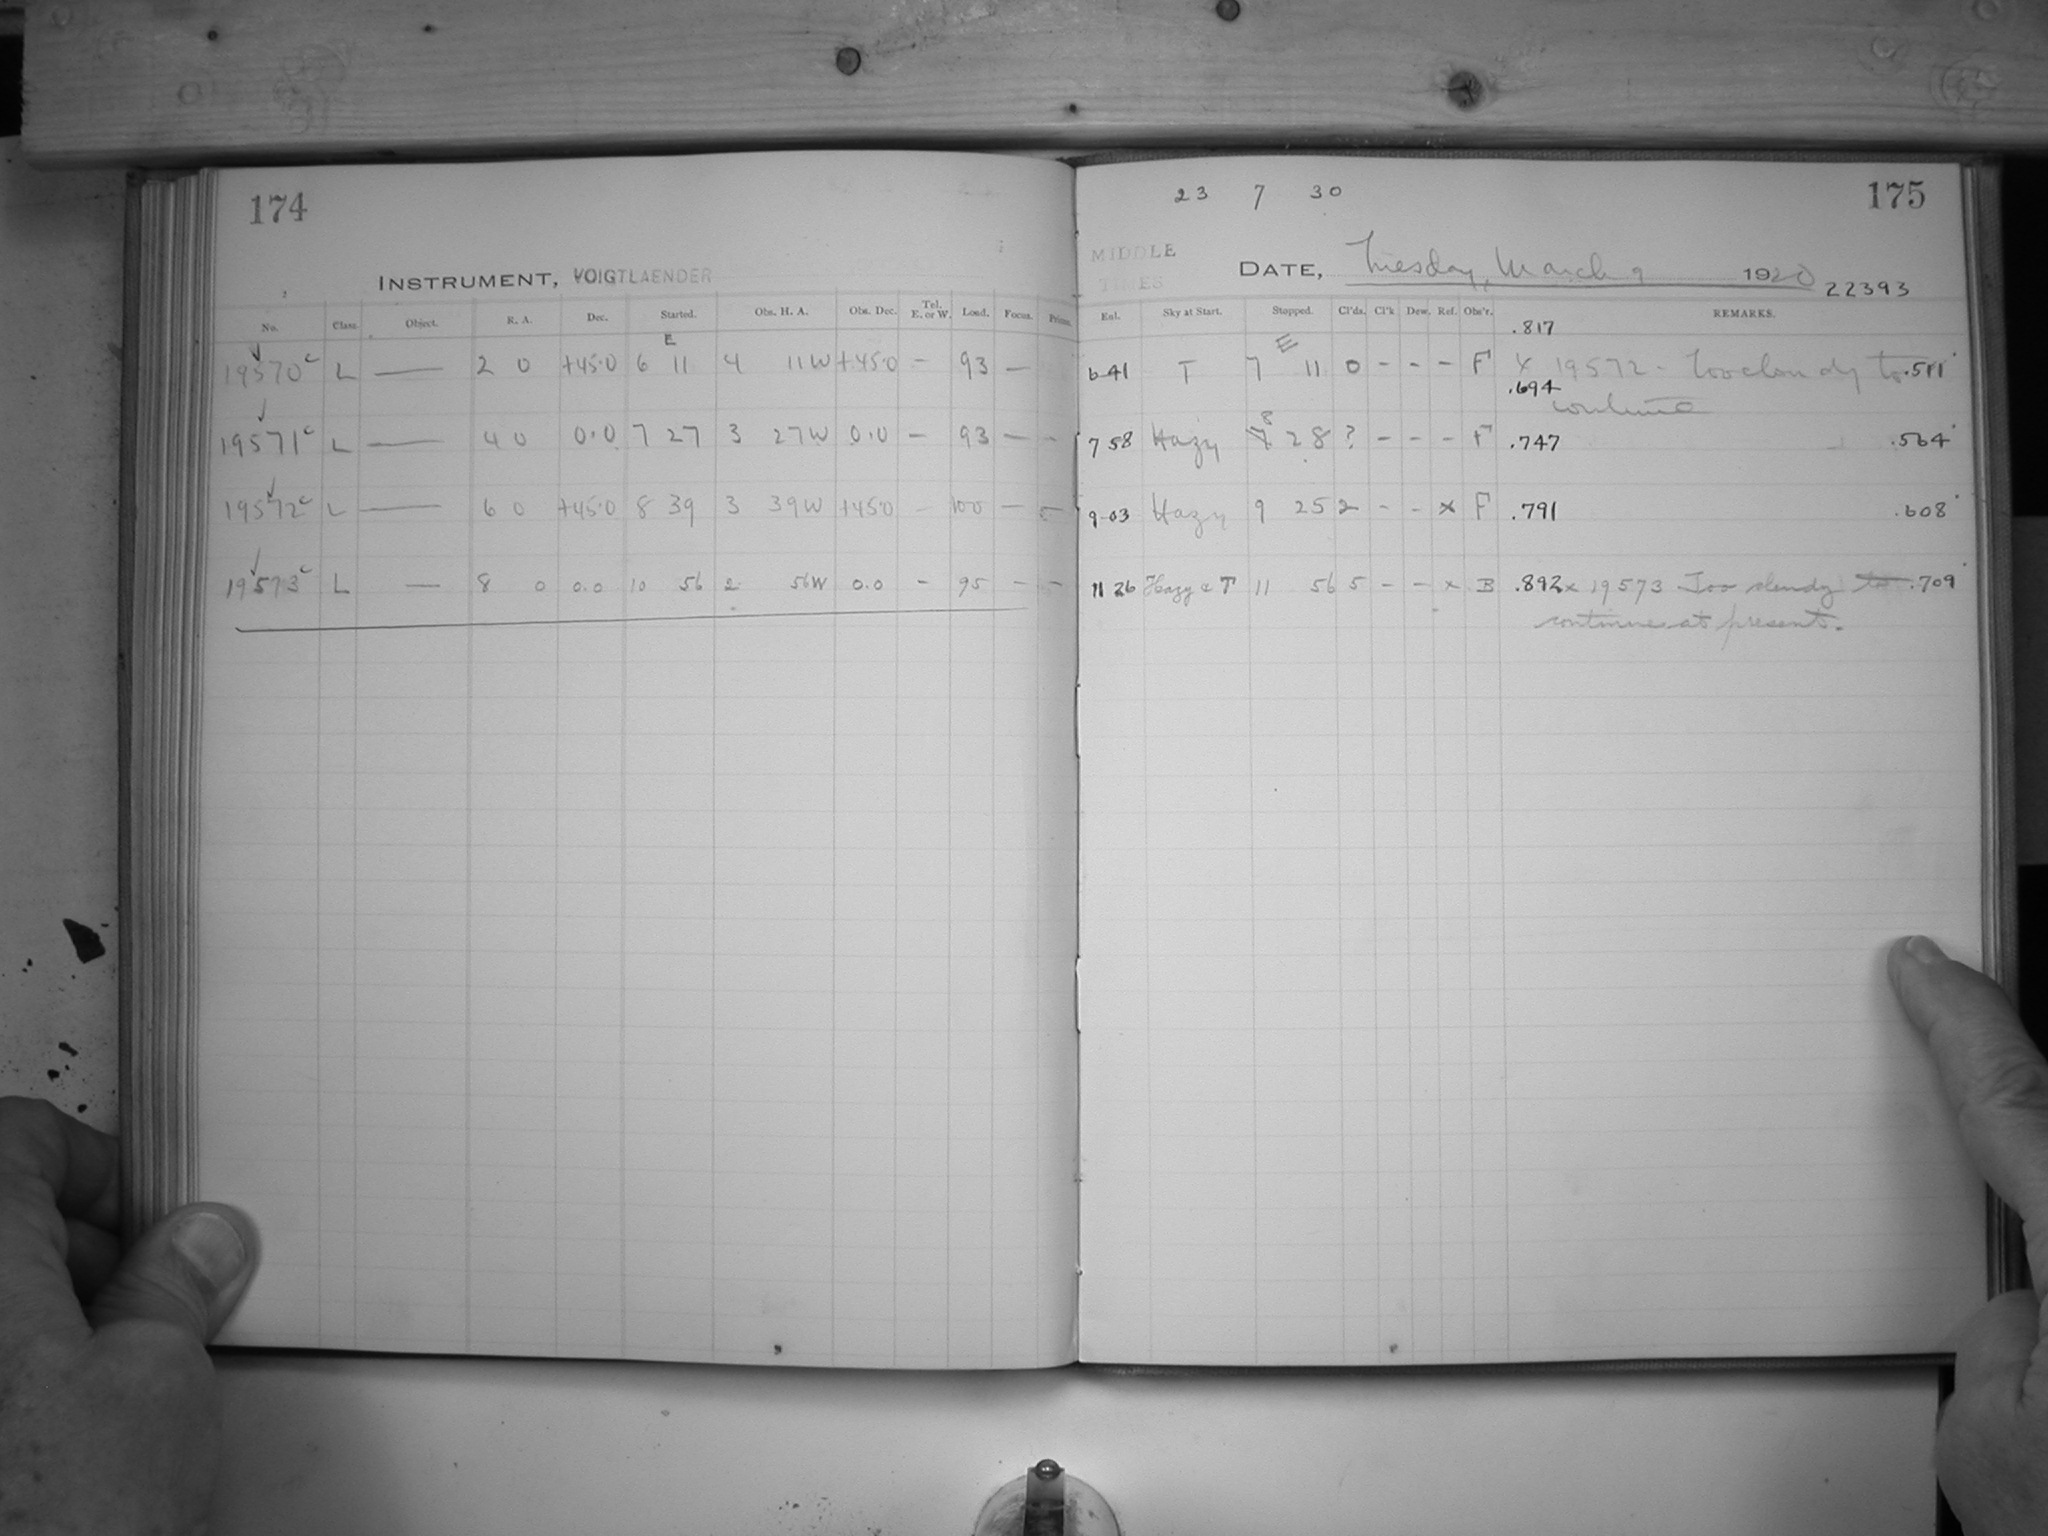 174
INSTRUMENT, VOIGTLAENDER
No. Class. Object. R. A. Dec. Started. Obs. H. A. Obs. Dec. Tel. E. or W. Load. Focus. Prisms.
E
19570 c L — 2 0 +45.0 6 11 4 11W +45.0 — 93 —
19571 c L — 4 0 0.0 7 27 3 27W 0.0 — 93 — —
19572 c L — 6 0 +45.0 8 39 3 39W +45.0 — 100 — —
19573 c L — 8 0 0.0 10 56 2 56W 0.0 — 95 — —
23 7 30
175
MIDDLE
TIMES
DATE, Tuesday, March 9 1920
22393
Enl. Sky at Start. Stopped. Cl'ds. Cl'k Dew. Ref. Obs'r. REMARKS.
.817
E
6 41 T 7 11 0 - - - F x 19572 - Too cloudy to .511
.694 continue
8
7 58 Hazy 7 28 ? - - - F .747 .564
9 03 Hazy 9 25 2 - - x F .791 .608
11 26 Hazy & T 11 56 5 - - x B .892 x 19573 Too cloudy to .709
continue at present.